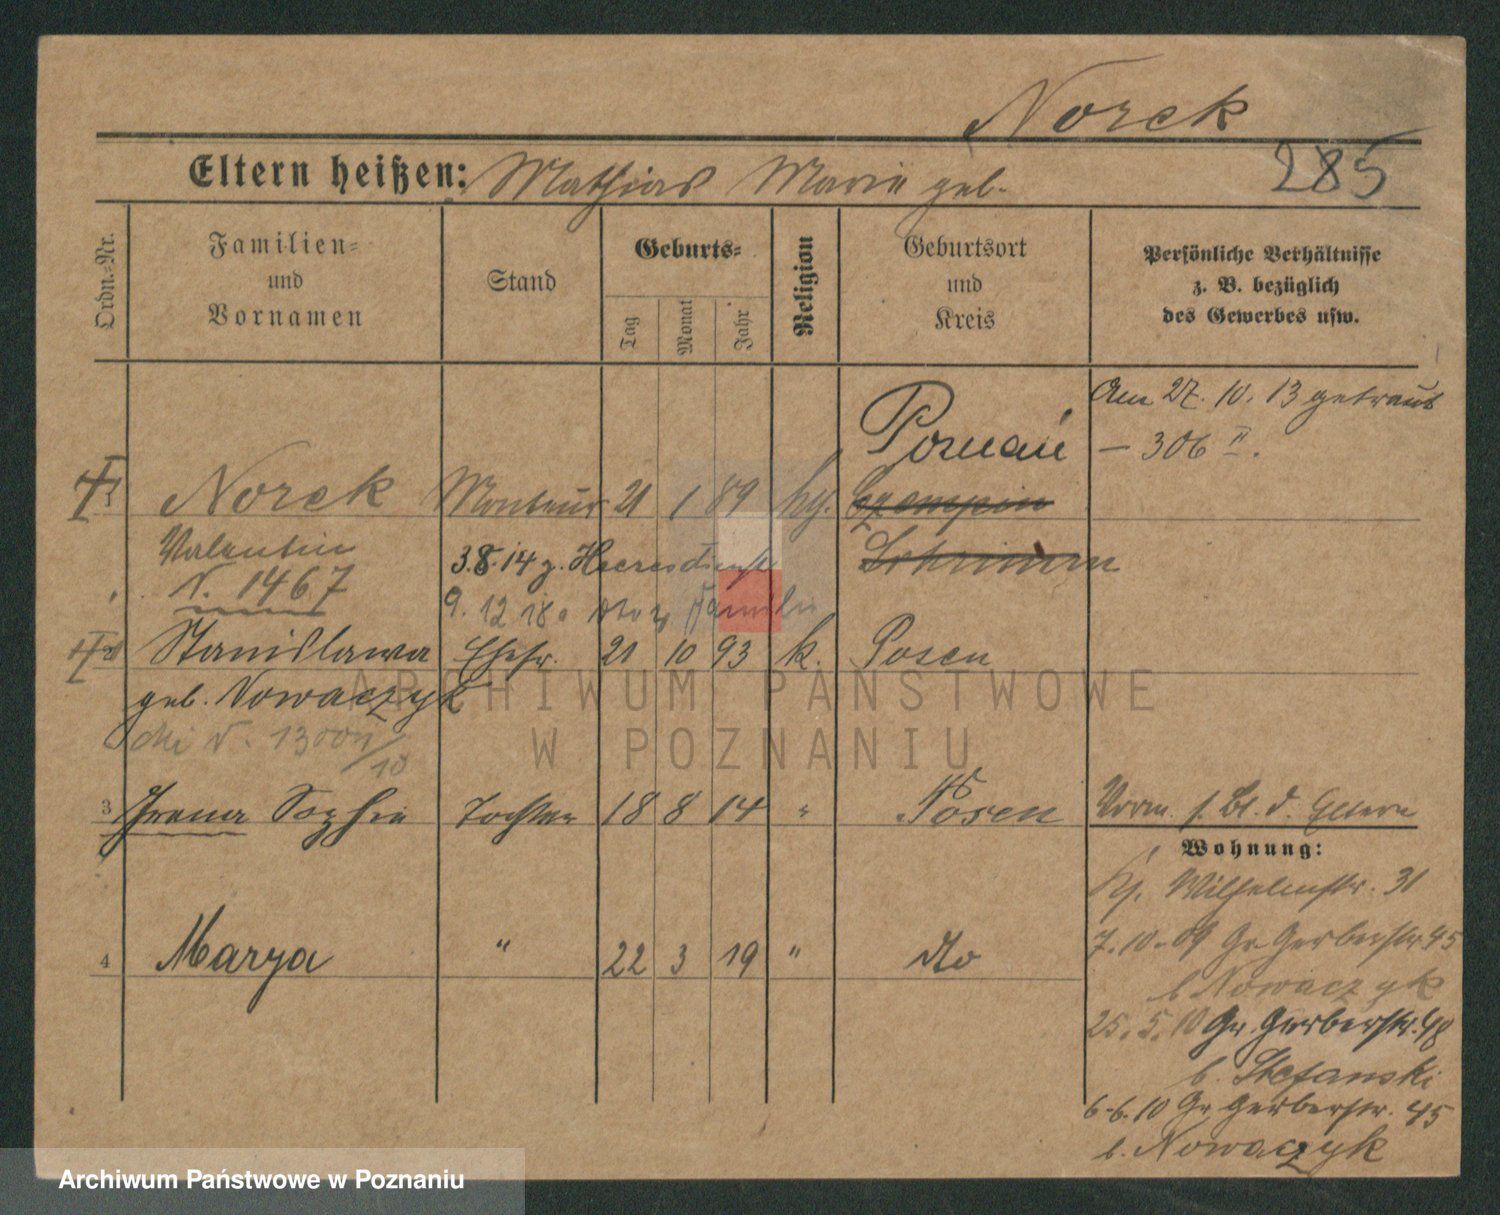 Norek
285
Eltern heißen: Mathias Marie geb.
Ordn.-Nr.
Familien-
und
Vornamen
Stand
Geburts-
Tag
Monat
Jahr
Religion
Geburtsort
und
Kreis
Persönliche Verhältnisse
z. B. bezüglich
des Gewerbes usw.
Am 27. 10. 13 getraut
Poznań
— 306 II.
Norek Monteur 21 1 89 Czempin
Valentin
3.8.14 z. Heeresdienst
Schrimm
N. 1467
9. 12 18 Familie
Stanislawa Ehefr. 21 10 93 k. Posen
geb. Nowaczyk
3 Irena Sophie Tochter 18 8 14 " Posen
Vorm. f. Bl. d. Eltern
Wohnung:
Wilhelmstr. 31
7.10.09 Gr Gerberstr 45
b Nowaczyk
4 Marya " 22 3 19 " dto
25.5.10 Gr. Gerberstr. 48
b. Stefanski
6.6.10 Gr Gerberstr. 45
b. Nowaczyk
ARCHIWUM PAŃSTWOWE
W POZNANIU
Archiwum Państwowe w Poznaniu